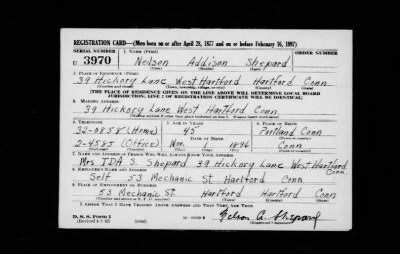 REGISTRATION CARD—(Men born on or after April 28, 1877 and on or before February 16, 1897)
SERIAL NUMBER 1. NAME (Print) ORDER NUMBER
U 3970 Nelson Addison Shepard
(First) (Middle) (Last)
2. PLACE OF RESIDENCE (Print)
39 Hickory Lane West Hartford Hartford Conn
(Number and street) (Town, township, village, or city) (County) (State)
[THE PLACE OF RESIDENCE GIVEN ON THE LINE ABOVE WILL DETERMINE LOCAL BOARD
JURISDICTION; LINE 2 OF REGISTRATION CERTIFICATE WILL BE IDENTICAL]
3. MAILING ADDRESS
39 Hickory Lane West Hartford Conn
4. TELEPHONE 5. AGE IN YEARS 6. PLACE OF BIRTH
32-0858 (Home) 45 Portland Conn
DATE OF BIRTH
2-4585 (Office) Nov. 1 1896 Conn
7. NAME AND ADDRESS OF PERSON WHO WILL ALWAYS KNOW YOUR ADDRESS
Mrs IDA S. Shepard 39 Hickory Lane West Hartford Conn
8. EMPLOYER'S NAME AND ADDRESS
Self 53 Mechanic St Hartford Conn
9. PLACE OF EMPLOYMENT OR BUSINESS
53 Mechanic St Hartford Hartford Conn
(Number and street or R. F. D. number) (Town) (County) (State)
I AFFIRM THAT I HAVE VERIFIED ABOVE ANSWERS AND THAT THEY ARE TRUE.
D. S. S. Form 1
(Revised 4-1-42) Nelson A. Shepard